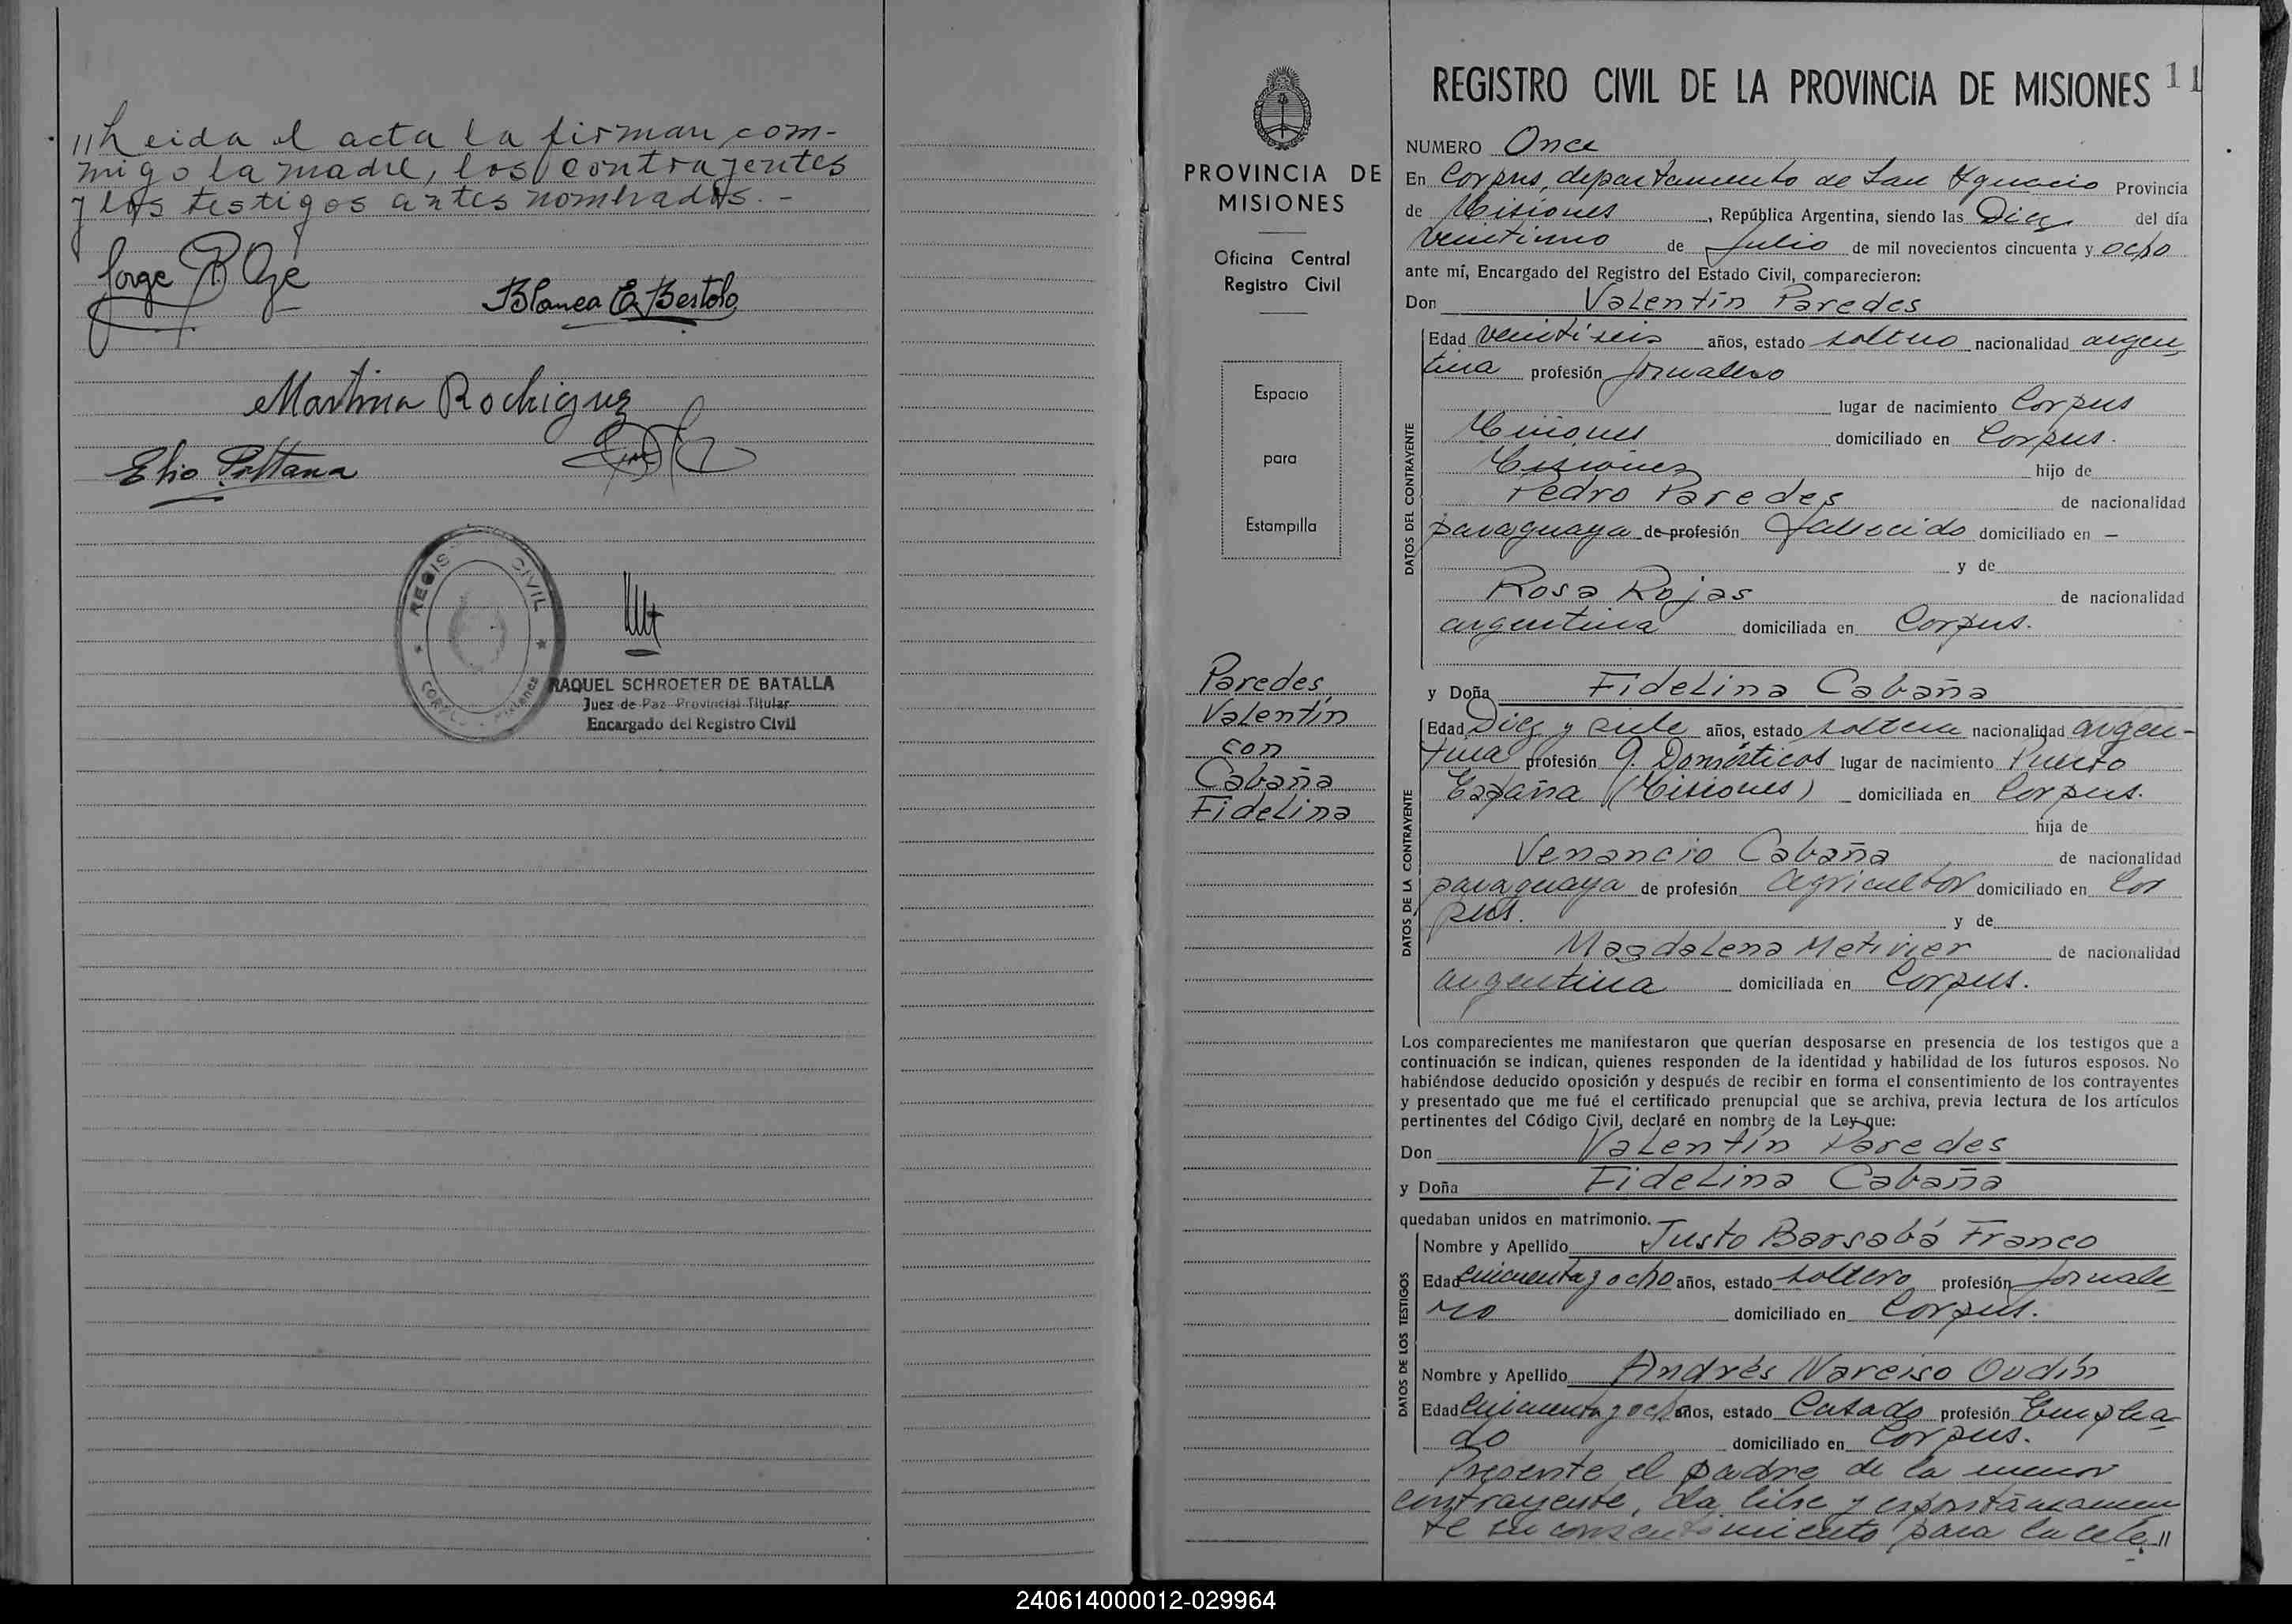 "Leida el acta la firman com-
migo la madre, los contrayentes
y los testigos antes nombrados. -
Jorge
Blanca E. Bertolo
Martina Rodriguez
Elio
REGIS CIVIL
CORPUS - Misiones
RAQUEL SCHROETER DE BATALLA
Juez de Paz Provincial Titular
Encargado del Registro Civil
PROVINCIA DE
MISIONES
Oficina Central
Registro Civil
Espacio
para
Estampilla
Paredes,
Valentín
con
Cabaña
Fidelina
REGISTRO CIVIL DE LA PROVINCIA DE MISIONES 11
NUMERO Once
En Corpus, departamento de San Ygnacio Provincia
de Misiones, República Argentina, siendo las Diez del día
veintiuno de Julio de mil novecientos cincuenta y ocho
ante mí, Encargado del Registro del Estado Civil, comparecieron:
Don Valentín Paredes
DATOS DEL CONTRAYENTE
Edad veintiseis años, estado soltero nacionalidad argen
tina profesión Jornalero
lugar de nacimiento Corpus
Misiones domiciliado en Corpus.
Misiones hijo de
Pedro Paredes de nacionalidad
paraguaya de profesión fallecido domiciliado en -
y de
Rosa Rojas de nacionalidad
argentina domiciliada en Corpus.
y Doña Fidelina Cabaña
DATOS DE LA CONTRAYENTE
Edad Diez y siete años, estado soltera nacionalidad argen-
tina profesión Q. Domésticos lugar de nacimiento Puerto
España (Misiones) domiciliada en Corpus.
hija de
Venancio Cabaña de nacionalidad
paraguaya de profesión Agricultor domiciliado en Cor
pus. y de
Magdalena Metivier de nacionalidad
argentina domiciliada en Corpus.
Los comparecientes me manifestaron que querían desposarse en presencia de los testigos que a
continuación se indican, quienes responden de la identidad y habilidad de los futuros esposos. No
habiéndose deducido oposición y después de recibir en forma el consentimiento de los contrayentes
y presentado que me fué el certificado prenupcial que se archiva, previa lectura de los artículos
pertinentes del Código Civil, declaré en nombre de la Ley que:
Don Valentín Paredes
y Doña Fidelina Cabaña
quedaban unidos en matrimonio.
DATOS DE LOS TESTIGOS
Nombre y Apellido Justo Barsabá Franco
Edad cincuenta y ocho años, estado soltero profesión Jornale
ro domiciliado en Corpus.
Nombre y Apellido Andrés Narciso Oudín
Edad Cincuenta y ocho años, estado Casado profesión Emplea
do domiciliado en Corpus.
Presente el padre de la menor
contrayente, da libre y espontáneamen
te su consentimiento para la cele"
240614000012-029964